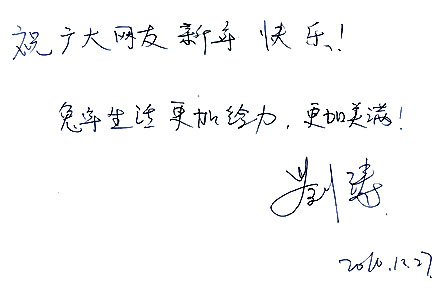 祝广大网友新年快乐!
兔年生活更加给力,更加美满!
刘涛
2010.12.27